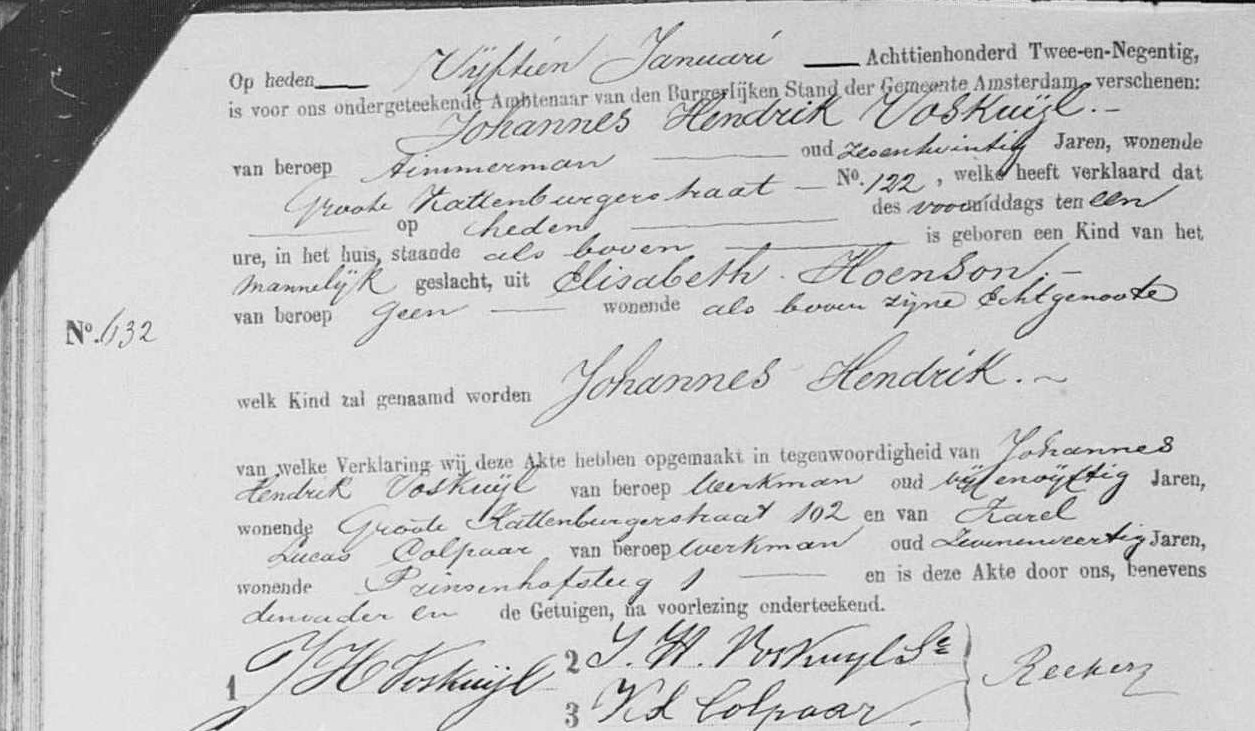 Op heden Vijftien Januari Achttienhonderd Twee-en-Negentig,
is voor ons ondergeteekende Ambtenaar van den Burgerlijken Stand der Gemeente Amsterdam, verschenen:
Johannes Hendrik Voskuijl.
van beroep timmerman oud zesentwintig Jaren, wonende
Groote Kattenburgerstraat No. 122, welke heeft verklaard dat
op heden des voormiddags ten een
ure, in het huis, staande als boven is geboren een Kind van het
mannelijk geslacht, uit Elisabeth Hoenson.
van beroep geen wonende als boven zijne Echtgenoote
No. 632
welk Kind zal genaamd worden Johannes Hendrik.
van welke Verklaring wij deze Akte hebben opgemaakt in tegenwoordigheid van Johannes
Hendrik Voskuijl van beroep Werkman oud vijfenvijftig Jaren,
wonende Groote Kattenburgerstraat 102 en van Karel
Lucas Colpaar van beroep werkman oud Zevenenveertig Jaren,
wonende Prinsenhofsteeg 1 en is deze Akte door ons, benevens
den vader en de Getuigen, na voorlezing onderteekend.
1 JH Voskuijl 2 J. H. Voskuyl Sr
3 K L Colpaar.